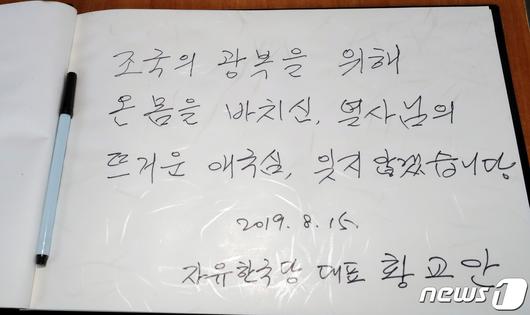 조국의 광복을 위해
온몸을 바치신, 열사님의
뜨거운 애국심, 잊지 않겠습니다
2019. 8. 15.
자유한국당 대표 황교안
news1